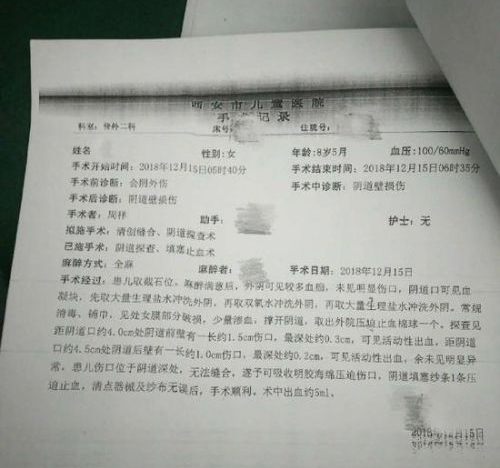 西安市儿童医院
手术记录
科室：骨外二科 床号： 住院号：
姓名 性别：女 年龄：8岁5月 血压：100/60mmHg
手术开始时间：2018年12月15日05时40分 手术结束时间：2018年12月15日06时35分
手术前诊断：会阴外伤 手术中诊断：阴道壁损伤
手术后诊断：阴道壁损伤
手术者：周祥 助手： 护士：无
拟施手术：清创缝合、阴道探查术
已施手术：阴道探查、填塞止血术
麻醉方式：全麻 麻醉者： 手术日期：2018年12月15日
手术经过：患儿取截石位。麻醉满意后，外阴可见较多血脂，未见明显伤口，阴道口可见血
凝块，先取大量生理盐水冲洗外阴，再取双氧水冲洗外阴，再取大量生理盐水冲洗外阴。常规
消毒、铺巾，见处女膜部分破损，少量渗血，撑开阴道，取出外院压迫止血棉球一个。探查见
距阴道口约4.0cm处阴道前壁有一长约1.5cm伤口，最深处约0.3cm，可见活动性出血，距阴道
口约4.5cm处阴道后壁有一长约1.0cm伤口，最深约0.2cm，可见活动性出血，余未见明显异
常，患儿伤口位于阴道深处，无法缝合，遂予可吸收明胶海绵压迫伤口，阴道填塞纱条1条压
迫止血，清点器械及纱布无误后，手术顺利。术中出血约5ml、